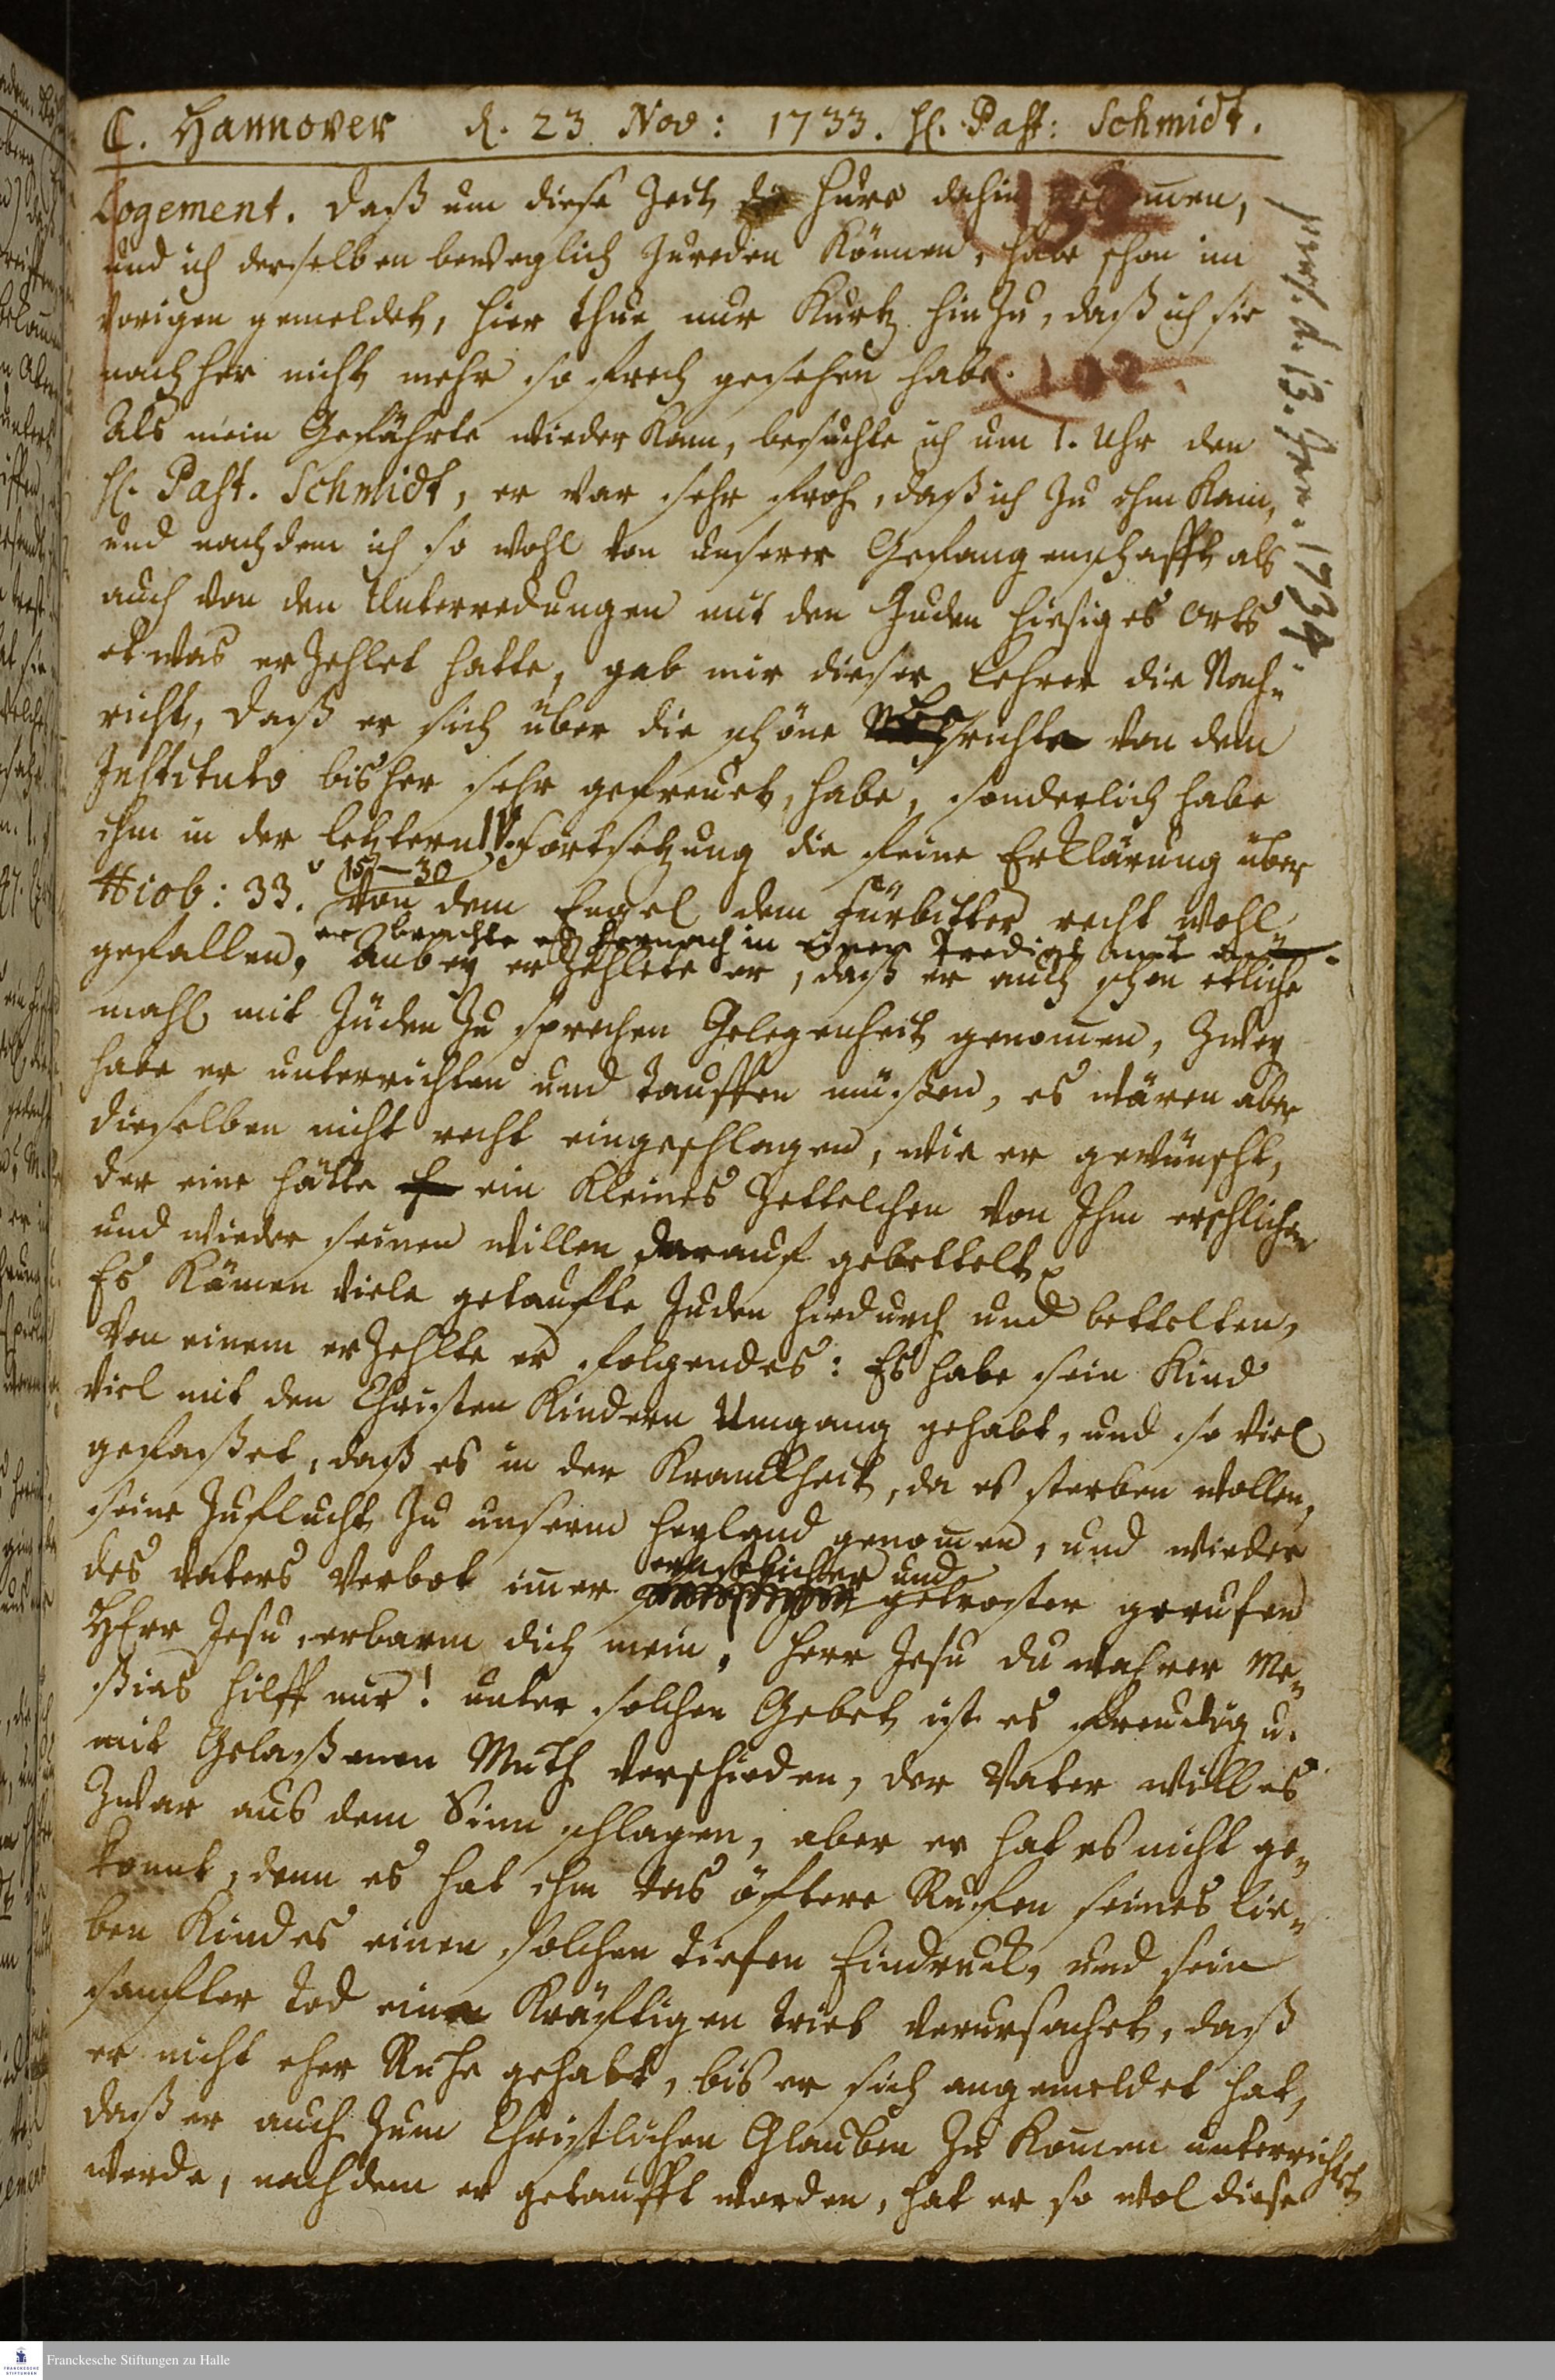 C. Hannover d. 23 Nov: 1733. H. Past: Schmidt.
Logement. Daß um diese Zeit die Hure dahin gekom̄en,
132
und ich derselben beweglich zureden können, habe schon im
vorigen gemeldet, hier thue nur kurtz hinzu, daß ich sie
nachher nicht mehr so frech gesehen habe.
102.
Als mein Gefährte wieder kam, besuchte ich um 1. Uhr den
H. Past. Schmidt, er war sehr froh, daß ich zu ihm kam,
und nachdem ich so wohl von unserer Gefangenschafft als
auch von den Unterredungen mit den Juden hiesiges Orts
etwas erzehlet hatte, gab mir dieser Lehrer die Nach-
richt, daß er sich über die schöne Berichte von dem
Instituto bisher sehr gefreuet, habe, sonderlich habe
ihm in der letztern IV. Fortsetzung die feine Erklärung über
v 15–30
Hiob: 33. von dem Engel dem Fürbitter recht wohl
er brachte es hernach in einer Predigt mit an.
gefallen, Anbey erzehlete er, daß er auch schon etliche
mahl mit Jüden zu sprechen Gelegenheit genom̄en, Zwey
habe er unterrichten und tauffen müßen, es wären aber
dieselben nicht recht eingeschlagen, wie er gewünscht,
der eine hätte ein kleines Zettelchen von Ihm erschlichen
und wieder seinen Willen darauf gebettelt.
Es kämen viele getaufte Juden hiedurch und bettelten,
Von einem erzehlte er folgendes: Es habe sein Kind
viel mit den Christen Kindern Umgang gehabt, und so viel
gefaßet, daß es in der Kranckheit, da es sterben wollen,
seine Zuflucht zu unserm Heyland genom̄en, und wieder
ernstlicher und
des Vaters Verbot im̄er getroster gerufen
HErr Jesu erbarm dich mein, Herr Jesu du wahrer Me-
ßias hilff mir! unter solchen Gebet ist es freudig u.
mit Gelaßenen Muth verschieden, der Vater will es
zwar aus dem Sinn schlagen, aber er hat es nicht ge-
konnt, denn es hat ihm das öftere Rufen seines lie-
ben Kindes einen solchen tiefen Eindruck, und sein
sanfter Tod einen kräftigen Trieb verursachet, daß
er nicht eher Ruhe gehabt, bis er sich angemeldet hat,
daß er auch zum Christlichen Glauben zu kom̄en unterrichtet
werde, nachdem er getaufft worden, hat er so wol diese
d. 13. Jan. 1734
Franckesche Stiftungen zu Halle